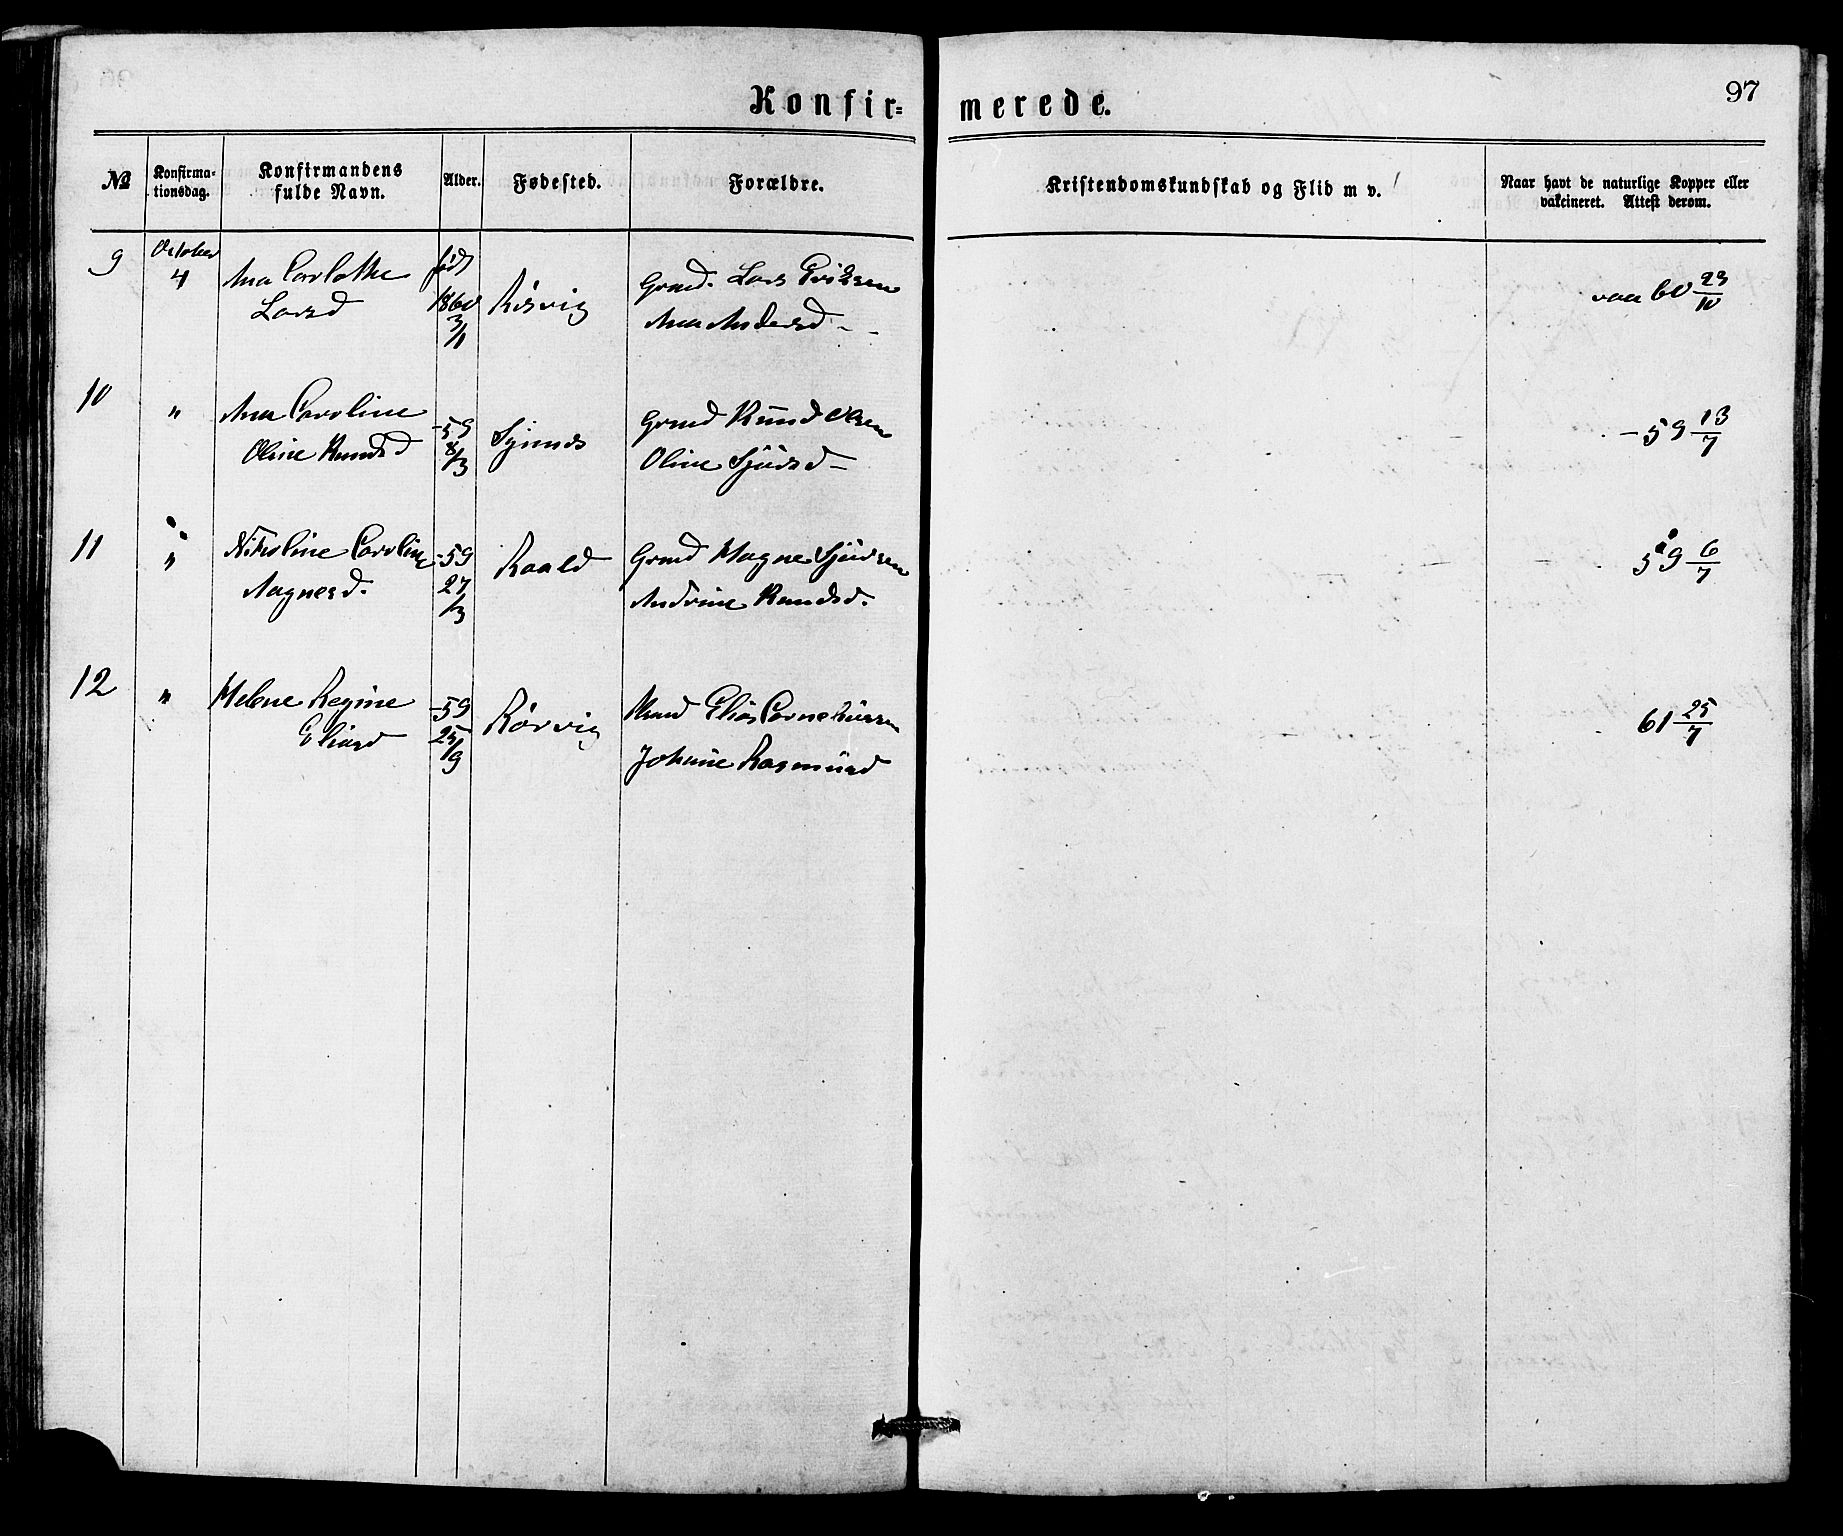 Konfir=
merede.
97
No
Konfirma-
tionsdag.
Konfirmandens
fulde Navn.
Alder.
Fødested.
Forældre.
Kristendomskundskab og Flid m v.
Naar havt de naturlige Kopper eller
vakcineret. Attest derom.
9
October
4
Ana Carlotte
Larsd
født
1860
3/1
Rørvig
Grmd. Lars Eriksen
Ana Andersd -
vac 60 23/10
10
"
Ana Caroline
Oline Knudsd
-59
8/3
Synnes
Grmd Knud Olsen
Oline Sjursd -
- 59 13/7
11
"
Nikoline Caroline
Magnesd.
-59
27/3
Roald
Grmd Magne Sjursen
Andrine Knudsd.
59 6/7
12
"
Helene Regine
Eliasd
-59
25/9
Rørvig
Elias Corneliussen
Johanne Rasmusd
61 25/7